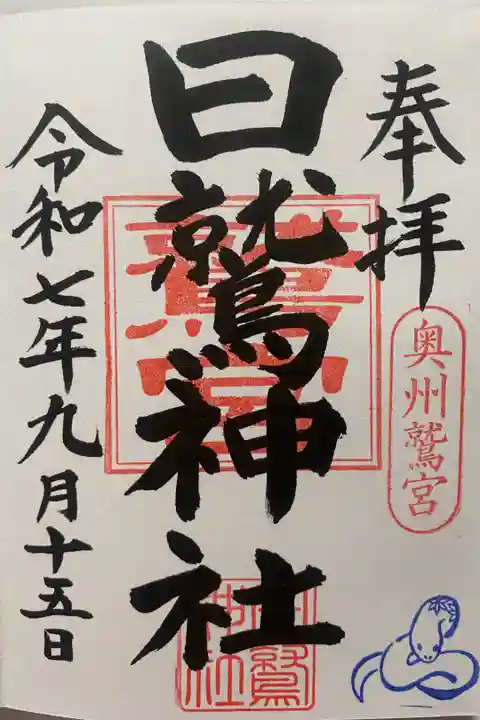 奉拝
奥州鷲宮
日鷲神社
令和七年九月十五日